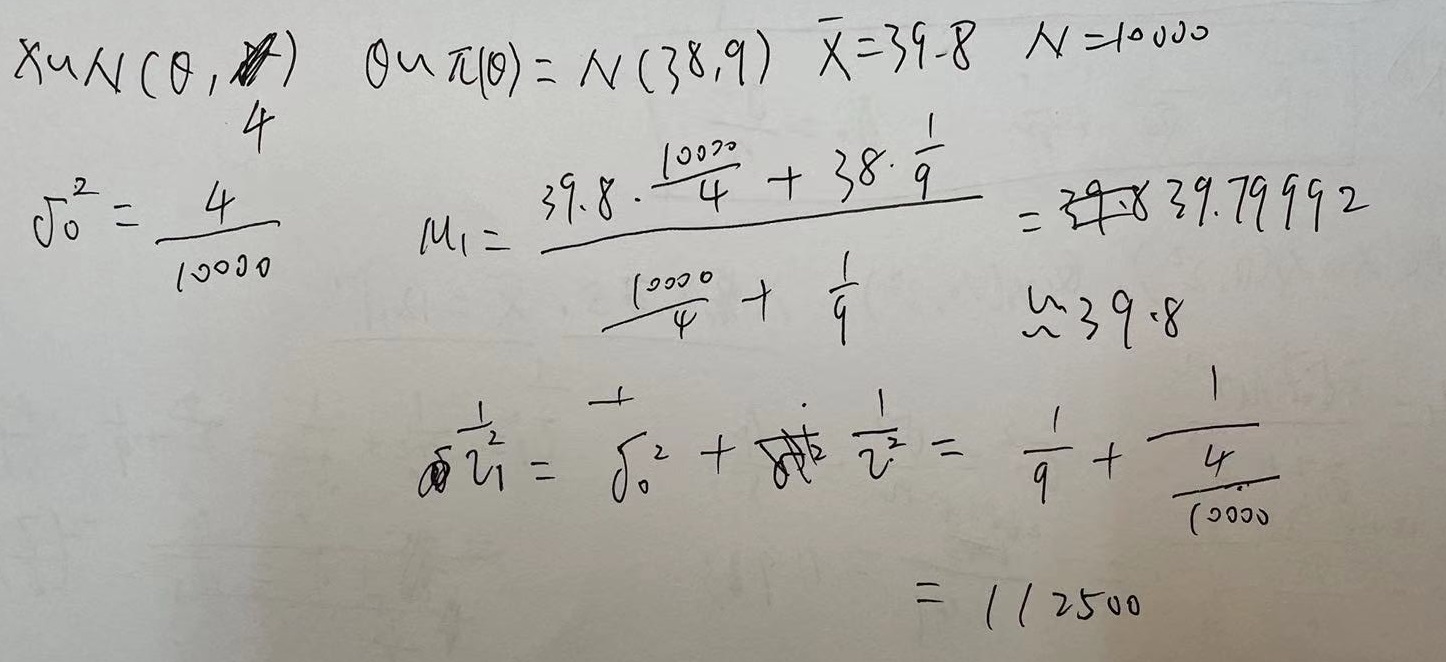 X ~ N(θ, 4) θ ~ π(θ) = N(38,9) X̄ = 39.8 N = 10000
σ₀² = 4/10000 μ₁ = (39.8 · 10000/4 + 38 · 1/9) / (10000/4 + 1/9) = 39.79992
≈ 39.8
1/τ₁² = 1/σ₀² + 1/τ² = 1/9 + 1/(4/10000)
= 112500